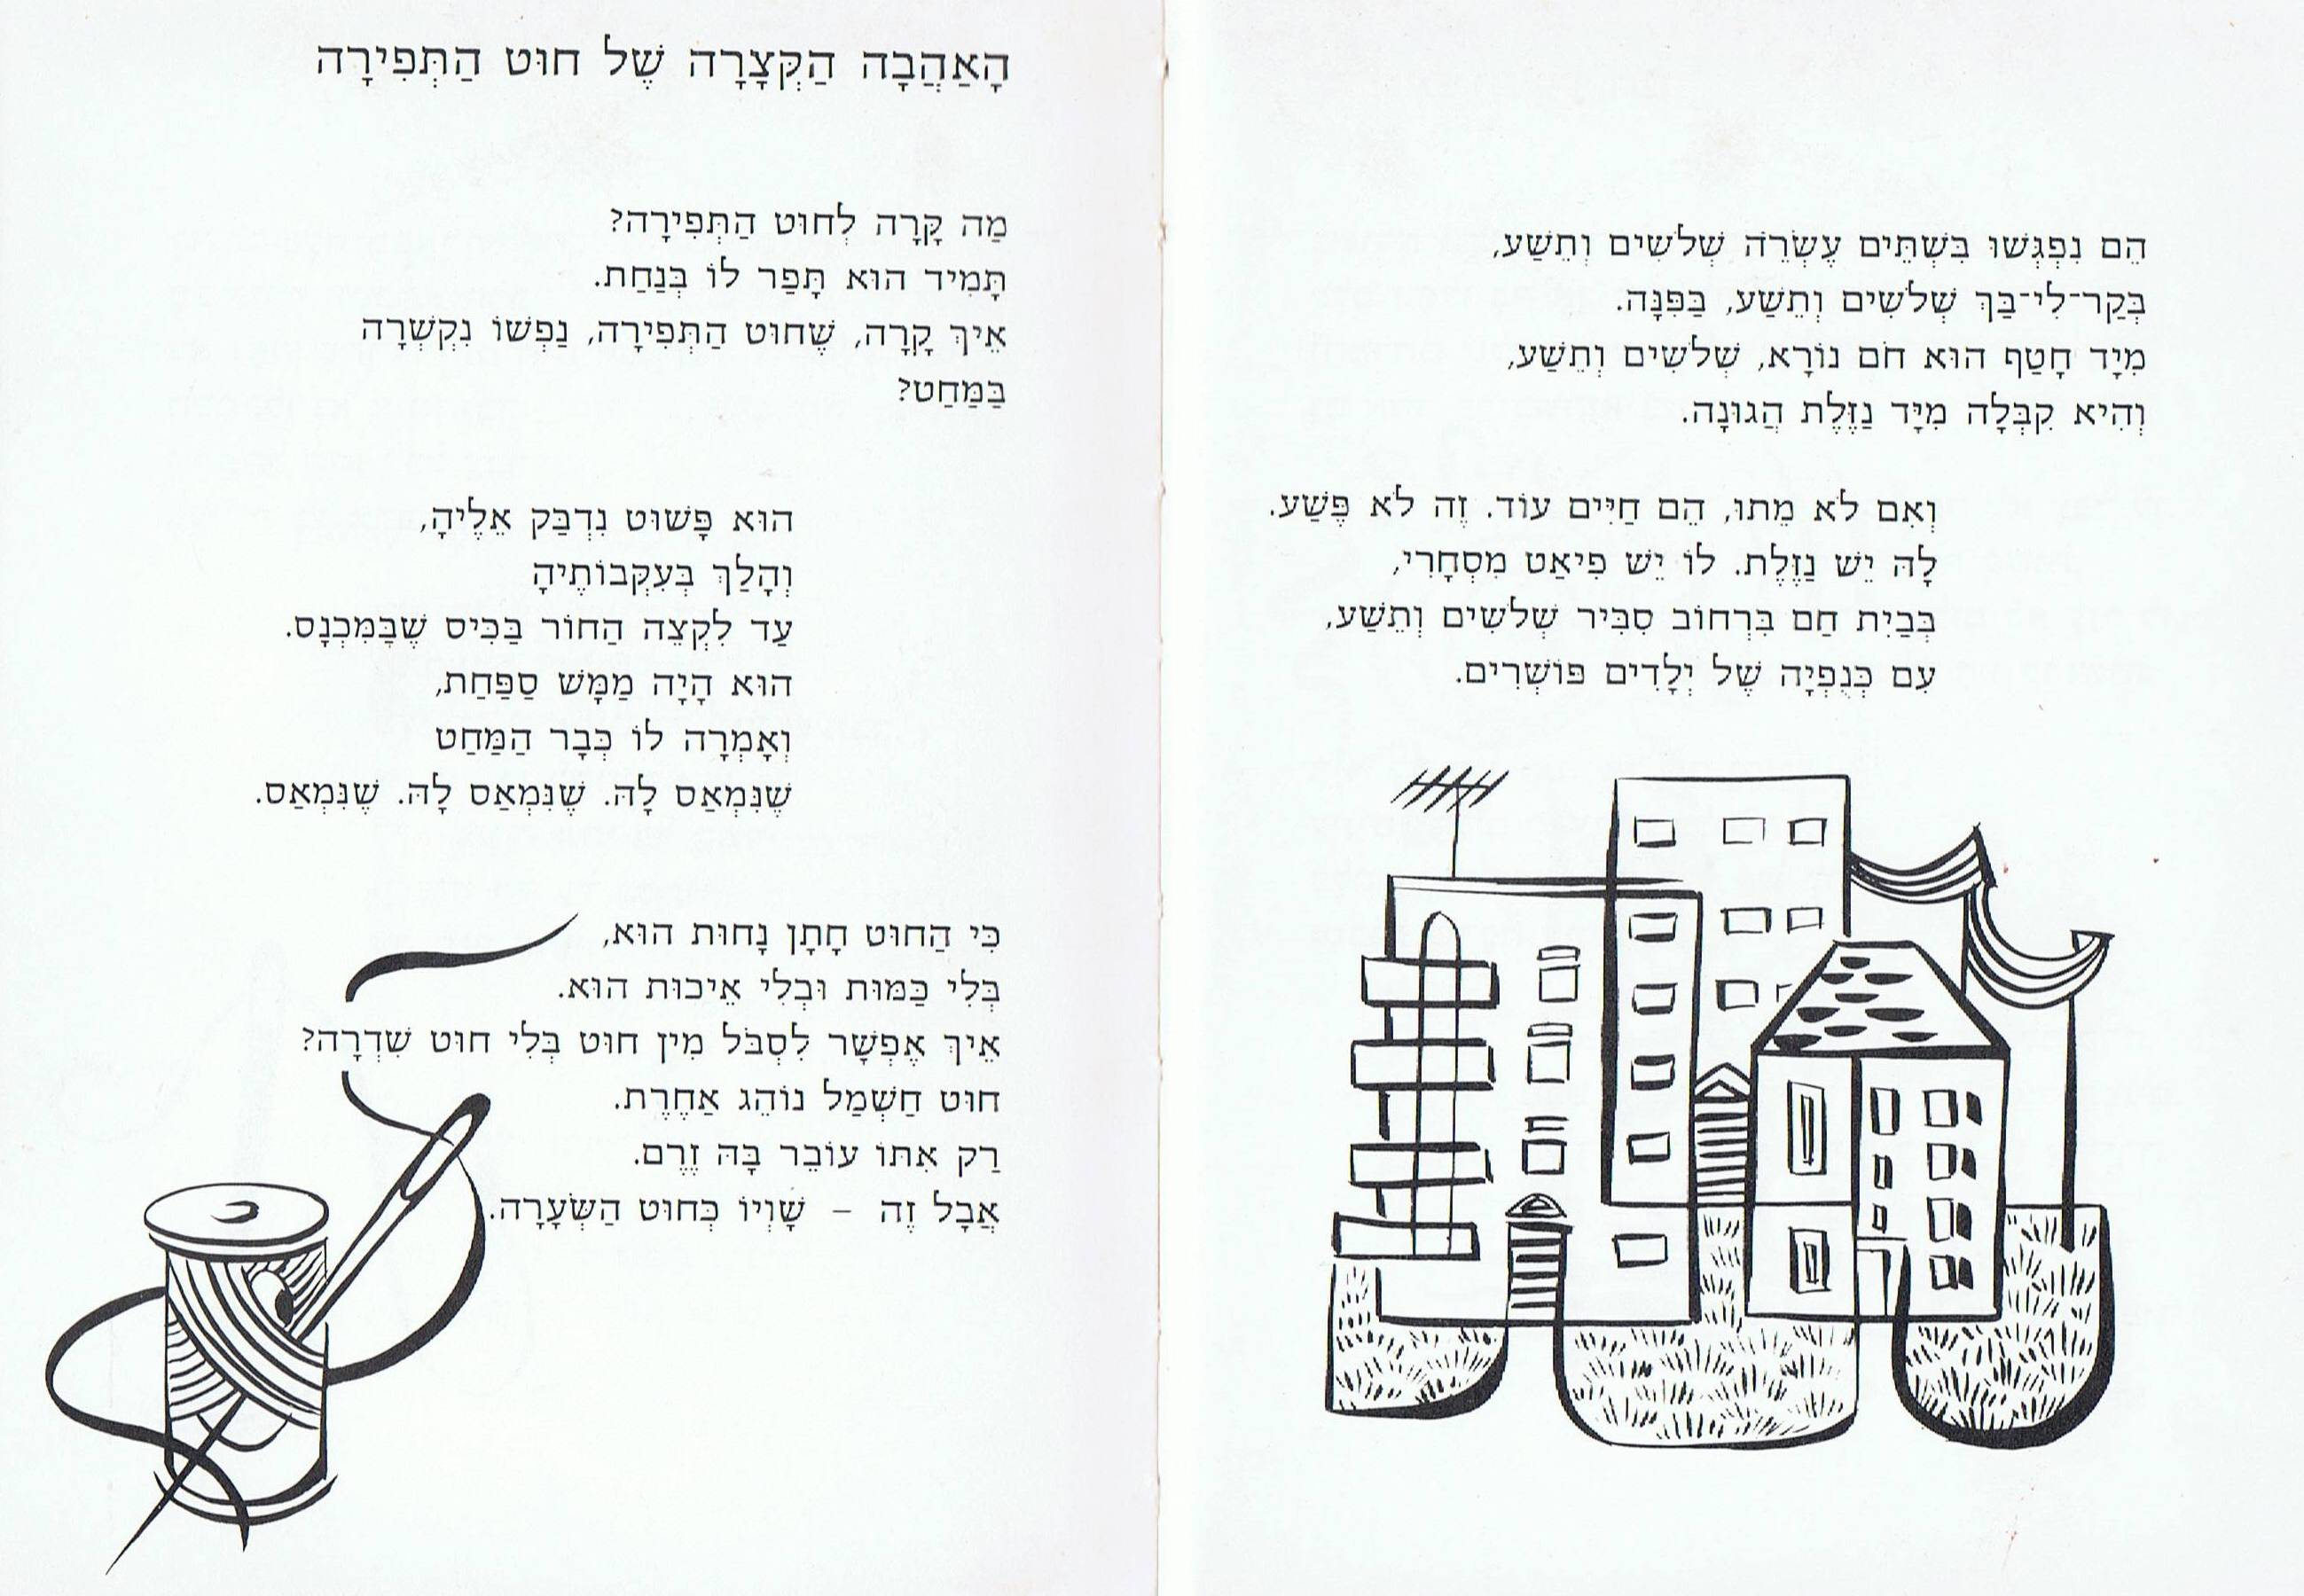 הֵם נִפְגְּשׁוּ בִּשְׁתֵּים עֶשְׂרֵה שְׁלֹשִׁים וְתֵשַׁע,
בְּקַר־לִי־בַּךְ שְׁלֹשִׁים וְתֵשַׁע, בַּפִּנָּה.
מִיָּד חָטַף הוּא חֹם נוֹרָא, שְׁלֹשִׁים וְתֵשַׁע,
וְהִיא קִבְּלָה מִיָּד נַזֶּלֶת הֲגוּנָה.
וְאִם לֹא מֵתוּ, הֵם חַיִּים עוֹד. זֶה לֹא פֶּשַׁע.
לָהּ יֵשׁ נַזֶּלֶת. לוֹ יֵשׁ פִיאַט מִסְחָרִי,
בְּבַיִת חַם בִּרְחוֹב סְבִּיר שְׁלֹשִׁים וְתֵשַׁע,
עִם כְּנֻפְיָה שֶׁל יְלָדִים פּוֹשְׁרִים.
הָאַהֲבָה הַקְּצָרָה שֶׁל חוּט הַתְּפִירָה
מַה קָּרָה לְחוּט הַתְּפִירָה?
תָּמִיד הוּא תָּפַר לוֹ בְּנַחַת.
אֵיךְ קָרָה, שֶׁחוּט הַתְּפִירָה, נַפְשׁוֹ נִקְשְׁרָה
בַּמַּחַט?
הוּא פָּשׁוּט נִדְבַּק אֵלֶיהָ,
וְהָלַךְ בְּעִקְּבוֹתֶיהָ
עַד לִקְצֵה הַחוֹר בַּכִּיס שֶׁבַּמִּכְנָס.
הוּא הָיָה מַמָּשׁ סַפַּחַת,
וְאָמְרָה לוֹ כְּבָר הַמַּחַט
שֶׁנִּמְאַס לָהּ. שֶׁנִּמְאַס לָהּ. שֶׁנִּמְאַס.
כִּי הַחוּט חָתָן נָחוּת הוּא,
בְּלִי כַּמּוּת וּבְלִי אֵיכוּת הוּא.
אֵיךְ אֶפְשָׁר לִסְבֹּל מִין חוּט בְּלִי חוּט שִׁדְרָה?
חוּט חַשְׁמַל נוֹהֵג אַחֶרֶת.
רַק אִתּוֹ עוֹבֵר בָּהּ זֶרֶם.
אֲבָל זֶה – שָׁוְיוֹ כְּחוּט הַשְּׂעָרָה.